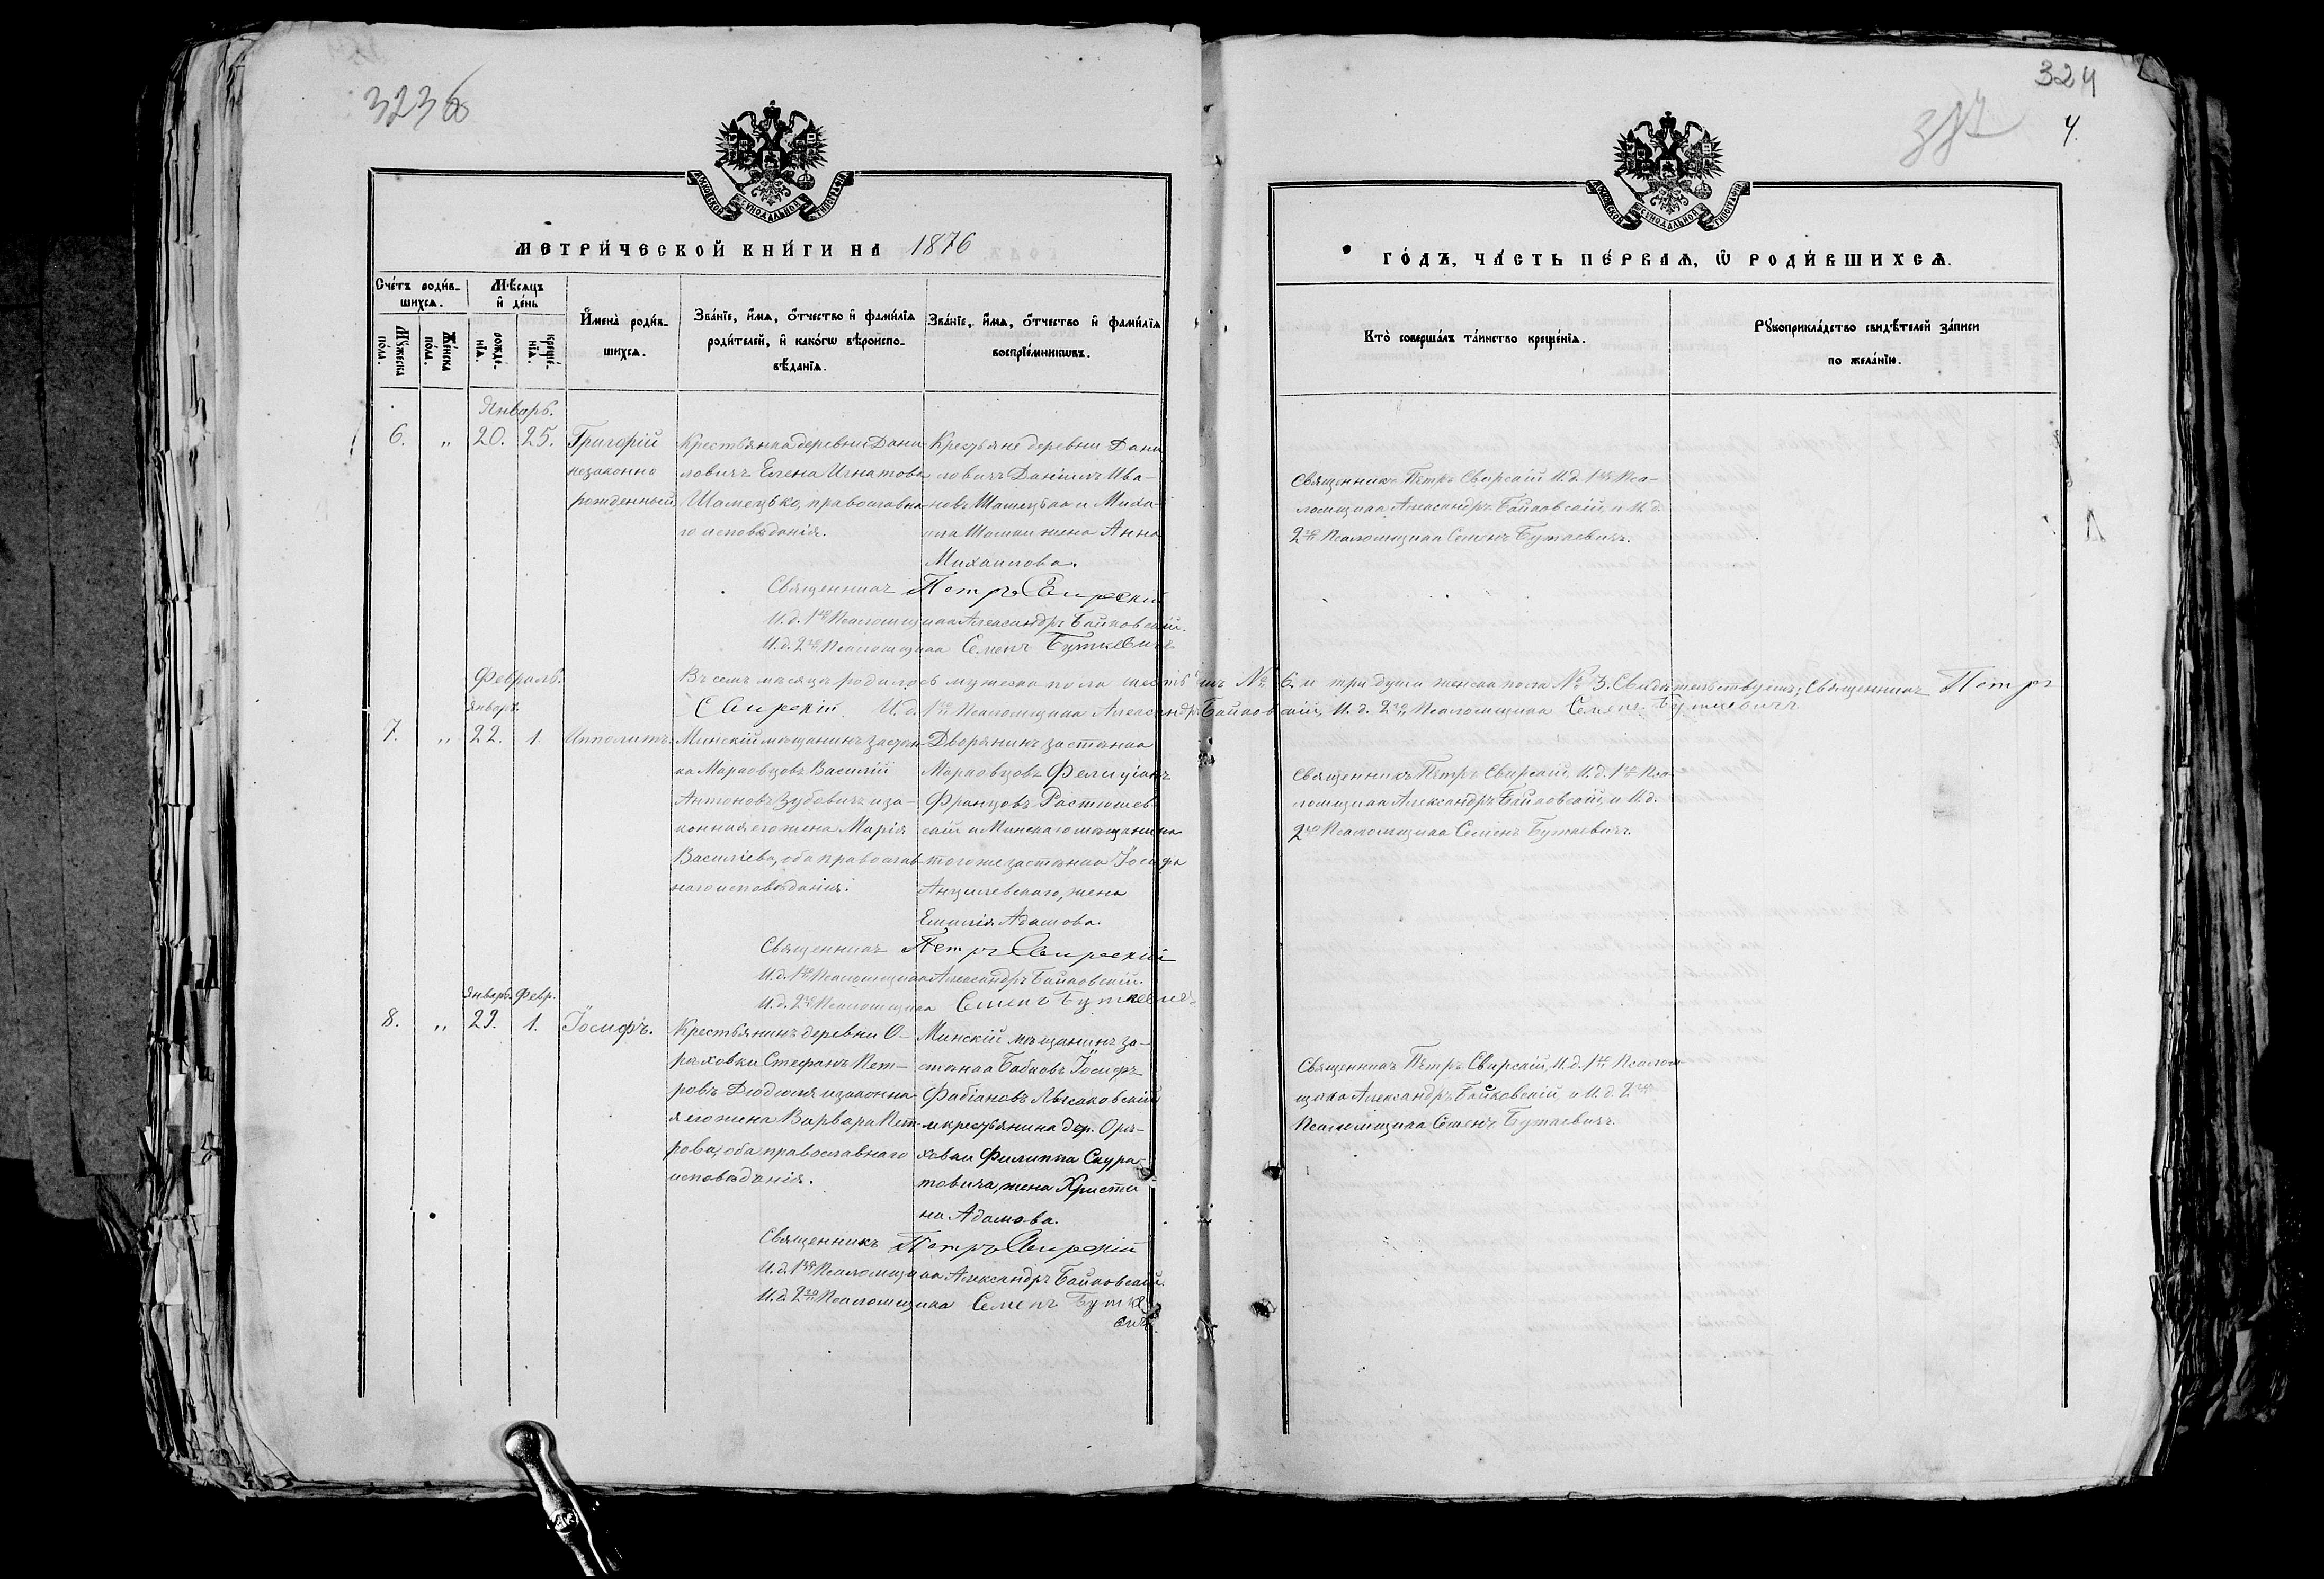 323б
МОСКОВСКОЙ СѴНОДАЛЬНОЙ ТИПОГРАФІИ
МЕТРИ́ЧЕСКОЙ КНИ́ГИ НА 1876
Сче́тъ роди́в-
шихсѧ.
Мѣ́сѧцъ
и҆ де́нь
Мꙋ́жеска
по́ла.
Же́нска
по́ла.
рожде́-
нїѧ.
креще́-
нїѧ.
И҆мена̀ роди́в-
шихсѧ.
Зва́нїе, и҆́мѧ, ѻ҆́тчество и҆ фами́лїѧ
роди́телей, и҆ како́гѡ вѣроиспо-
вѣ́данїѧ.
Зва́нїе, и҆́мѧ, ѻ҆́тчество и҆ фами́лїѧ
воспрїе́мникѡвъ.
Январь.
6. „ 20. 25.
Григорій
незаконно
рожденный
Крестьянка деревни Дани-
ловичъ Елена Игнатова
Шамецько, православна-
го исповѣданія.
Крестьяне деревни Дани
ловичъ Даніилъ Ива-
новъ Шамецько и Миха-
ила Шамки жена Анна
Михаилова.
Священникъ Петръ Свирскій
И.д. 1го Псаломщика Александръ Байковскій.
И.д. 2го Псаломщика Семенъ Буткевичъ
Февраль.
Въ семъ мѣсяцѣ родилось мужеска пола шесть душъ № 6. и три души женска пола № 3. Свидѣтельствуемъ: Священникъ Петръ
Свирскій И.д. 1го Псаломщика Александръ Байковскій, И.д. 2го Псаломщика Семенъ Буткевичъ
Январь.
7. „ 22. 1.
Ипполитъ.
Минскій мѣщанинъ застѣн-
ка Марковцовъ Василій
Антоновъ Зубовичъ и за-
конная его жена Марія
Васильева, оба православ-
наго исповѣданія.
Дворянинъ застѣнка
Марковцовъ Фелиціанъ
Францовъ Растошев-
скій и Минскаго мѣщанина
того же застѣнка Іосифа
жена
Емилія Адамова.
Священникъ Петръ Свирскій
И.д. 1го Псаломщика Александръ Байковскій.
И.д. 2го Псаломщика Семенъ Буткевичъ
Январь. Февр.
8. „ 29. 1.
Іосифъ.
Крестьянинъ деревни О-
рѣховки Стефанъ Пет-
ровъ Дюдюля и законна-
я его жена Варвара Пет-
рова, оба православнаго
исповѣданія.
Минскій мѣщанинъ за-
стѣнка Бабковъ Іосифъ
Фабіановъ Лысаковскій
и крестьянина дер. Орѣ-
ховки Филиппа Скура-
товича, жена Христи
на Адамова.
Священникъ Петръ Свирскій
И.д. 1го Псаломщика Александръ Байковскій.
И.д. 2го Псаломщика Семенъ Бутке
вичъ
324
4.
МОСКОВСКОЙ СѴНОДАЛЬНОЙ ТИПОГРАФІИ
ГО́ДЪ, ЧА́СТЬ ПЕ́РВАѦ, Ѡ҆ РОДИ́ВШИХСѦ.
Кто̀ соверша́лъ та́инство креще́нїѧ.
Рꙋкоприкла́дство свидѣ́телей за́писи
по жела́нїю.
Священникъ Петръ Свирскій И.д. 1го Пса-
ломщика Александръ Байковскій, и И.д.
2го Псаломщика Семенъ Буткевичъ.
Священникъ Петръ Свирскій, И.д. 1го Пса-
ломщика Александръ Байковскій, и И.д.
2го Псаломщика Семенъ Буткевичъ.
Священникъ Петръ Свирскій, И.д. 1го Псалом-
щика Александръ Байковскій, и И.д. 2го
Псаломщика Семенъ Буткевичъ.